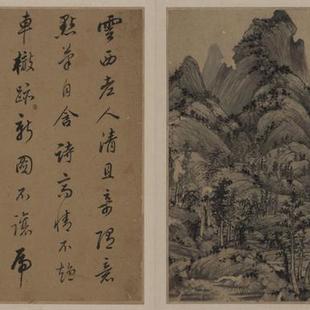 雲西老人清且奇隨意
點筆自含詩高情不
車轍跡新圖不讓虎